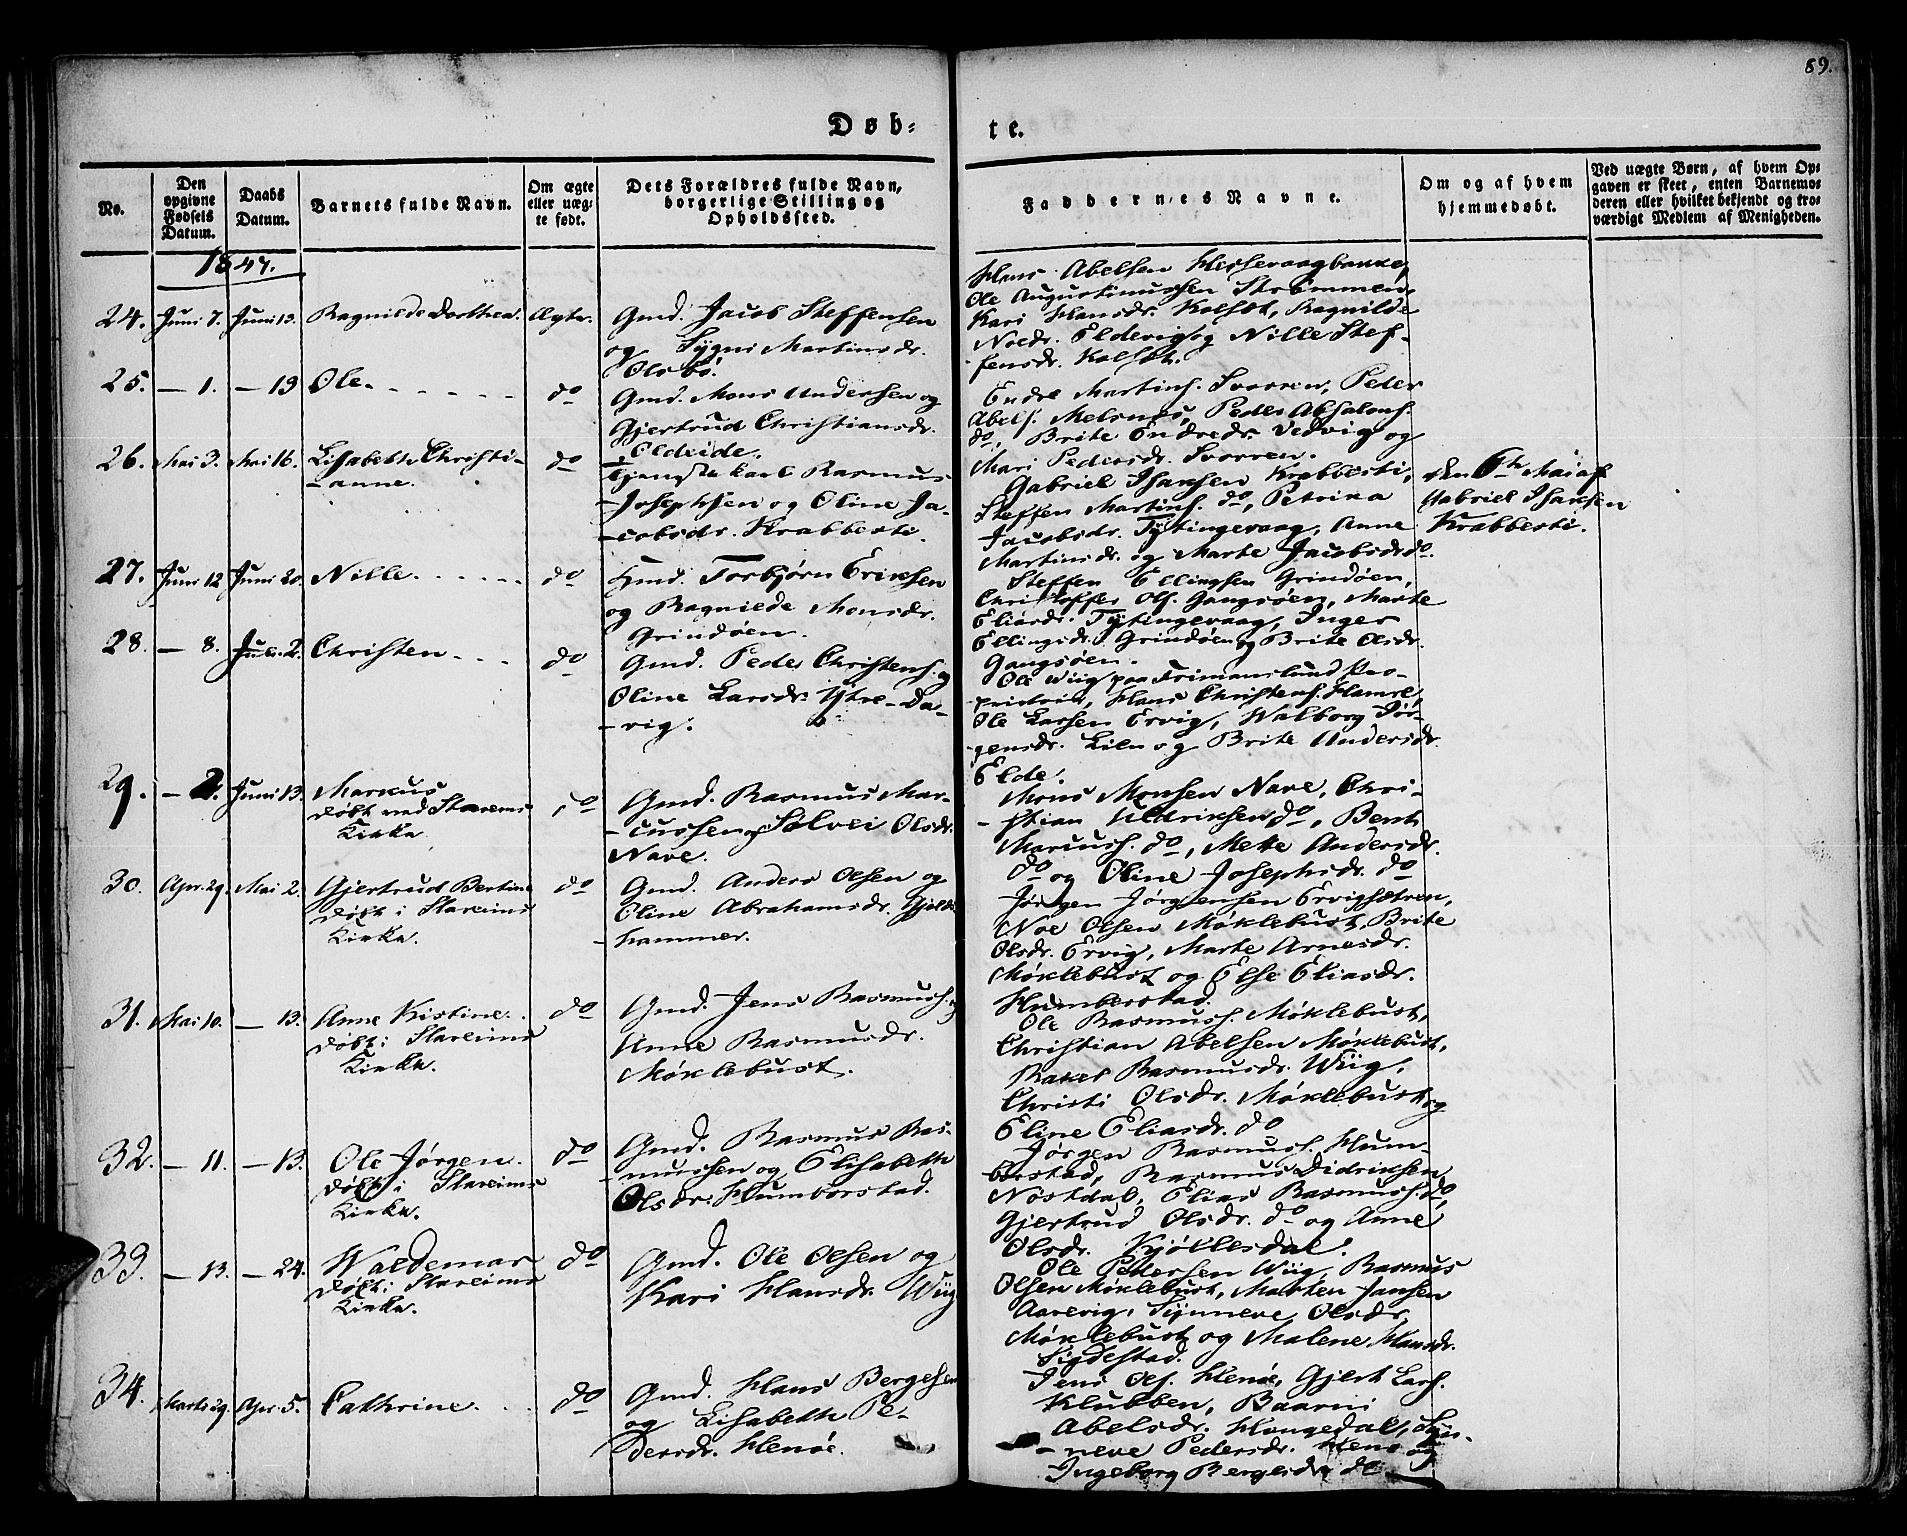 89.
Døb-
te.
No.
Den opgivne Fødsels Datum.
Daabs Datum.
Barnets fulde Navn.
Om ægte eller uægte født.
Dets Forældres fulde Navn, borgerlige Stilling og Opholdssted.
Faddernes Navne.
Om og af hvem hjemmedøbt.
Ved uægte Børn, af hvem Opgaven er skeet, enten Barnemoderen eller hvilket bekjendt og troværdigt Medlem af Menigheden.
1847.
24. Juni 7. Juni 13. Ragnilde Dorthea. Ægte.
Gmd. Jacob Steffensen
og Sygni Martinsdr.
Olsbö.
Hans Abelsen Hissevaagbakke,
Ole Augustinussen Strømmen,
Kari Hansdr. Kolset, Ragnilde
Noedr. Eldevig og Nille Stef-
fensdr. Kolset.
25. — 1. — 13 Ole. do
Gmd. Mons Andersen og
Gjertrud Christiansdr.
Eldeide.
Endre Martins. Svorren, Peder
Abels. Melsnes, Peder Absalons.
do, Brite Endredr. Vedvig og
Mari Pedersdr. Svorren.
26. Mai 3. Mai 16. Lisabeth Christi-
-anne. do
Tjenestekarl Rasmus
Josephsen og Oline Ja-
-cobsdr. Krabbesti.
Gabriel Isaksen Krabbesti,
Steffen Martins. do, Petrika
Jacobsdr. Tytingevaag, Anne
Martinsdr. og Marte Jacobsdr. do.
den 6th Mai af
Gabriel Isaksen
Krabbesti.
27. Juni 12 Juni 20. Nille. do
Gmd. Torbjørn Eriksen
og Ragnilde Monsdr.
Grindøen.
Steffen Ellingsen Grindøen,
Christoffer Ols. Gangsøen, Marte
Eliasdr. Tytingevaag, Inger
Ellingsdr. Grindøen og Brite Olsdr.
Gangsøen.
28. — 8. Juli 2. Christen. do
Gmd. Peder Christens. og
Oline Larsdr. Ytre-Da-
-vig.
Ole Wiig paa Frimanslund Pro-
prietair, Hans Christens. Hamre,
Ole Larsen Ervig, Walborg Jør-
gensdr. Lilo og Brite Andersdr.
Elde.
29. — 2. Juni 13. Markus
døbt ved Stareims
Kirke. do
Gmd. Rasmus Mar-
-cussen og Sølvei Olsdr.
Nave.
Mons Monsen Nave, Chri-
-stian Didriksen do, Bent
Mariuss. do, Mette Andersdr.
do og Oline Josephsdr. do
30. Apr. 29. Mai 2. Gjertrud Bertine
døbt i Stareims
Kirke. do
Gmd. Anders Olsen og
Eline Abrahamsdr. Gjelds
-hammer.
Jørgen Jørgensen Ervigsætren,
Noe Olsen Møklebust, Brite
Olsdr. Ervig, Marte Arnesdr.
Møklebust og Else Eliasdr.
Humberstad.
31. Mai 10. — 13. Anne Kistine.
døbt i Stareims
Kirke. do
Gmd. Jens Rasmuss. og
Anne Rasmusdr.
Møklebust.
Ole Rasmuss. Møklebust,
Christian Abelsen Møklebust,
Rakel Rasmusdr. Wiig,
Christi Olsdr. Møklebust og
Eline Eliasdr. do
32. — 11. — 13. Ole Jørgen.
døbt i Stareims
Kirke. do
Gmd. Rasmus Ras-
-mussen og Elisabeth
Olsdr. Humborstad.
Jørgen Rasmuss. Hum-
berstad, Rasmus Didriksen
Nostdal, Elias Rasmuss. do,
Gjertrud Olsdr. do og Anne
Olsdr. Kjøllesdal.
33. — 13. — 24. Waldemar
døbt i Stareims
Kirke. do
Gmd. Ole Olsen og
Kari Hansdr. Wiig
Ole Pedersen Wiig, Rasmus
Olsen Møklebust, Marten Jansen
Aarevig, Synneve Olsdr.
Møklebust og Malene Hansdr.
Sigdestad.
34. Marts 29. Apr. 5. Cathrine. do
Gmd. Hans Bergesen
og Lisabeth Pe-
dersdr. Henøe.
Jens Ols. Henøe, Gjert Lars.
Klubben, Baarni
Abelsdr. Haugedal, Syn-
-neve Pedersdr. Henø og
Ingeborg Bergesdr. do